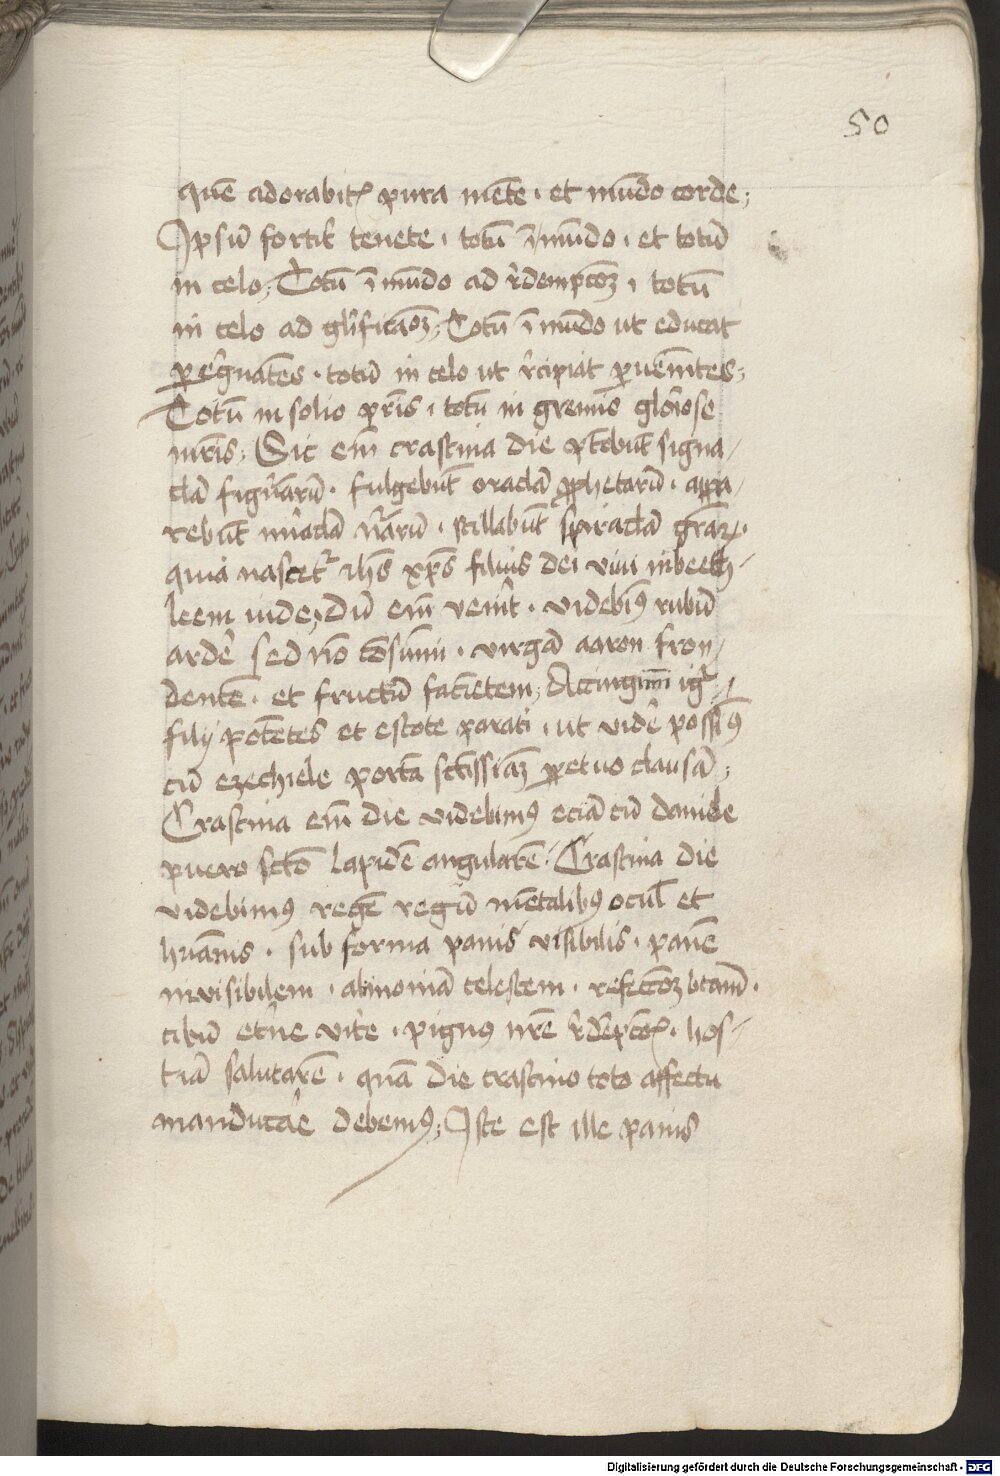 50
quē adorabitᵣ pura mēte · et mūdo corde;
Ipsū fortiṫ tenete · totū ī mūdo · et totū
in celo; Totū ī mūdo ad r̄dempc̄oꝫ · totū
in celo ad gl̄ificac̄oꝫ; Totū ī mūdo ut educat
peg̃nātes · totū in celo ut r̄cipiat pueniētes;
Totū in solio pr̄is · totū in gremis gl̄oiose
mr̄is; Sic em̄ crastina die ptebūt signa/
cl̄a figurarū · fulgebūt oracl̄a ꝓphetarū · appa/
rebūt mirācl̄a · stillabūt spiracl̄a gr̄aꝝ ·
quia nascetᵣ ihs xp̄s filius dei viui inbeeth/
leem iude; Dū em̄ venīt · videbimꝰ rubū
ardē sed nō cōsumi · virgā aaron fron/
dentē · et fructū faciētem; Accingimī igᵣ
filij potētes et estote parati · ut vidē possimꝰ
cū ezechiele portā sc̄tissīaꝫ ꝑpetuo clausā;
Crastina em̄ die videbimꝰ eciā cū daniele
puero sc̄tō lapidē angularē · Crastina die
videbimꝰ regē regū mētalibꝰ ocul̄ et
huānis · sub forma panis visibilis · panē
invisibilem · alimoniā celestem · refecc̄oꝫ btām ·
cibū et̄ne vite · pignus nr̄e r̄dēpc̄oīs · hos/
tiā salutarē · quā die crastino toto affectu
manducāe debemꝰ; Iste est ille panis
Digitalisierung gefördert durch die Deutsche Forschungsgemeinschaft - DFG